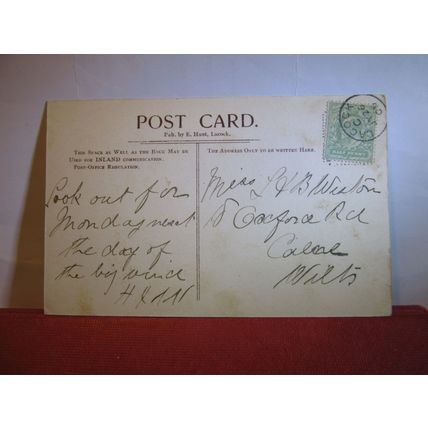 POST CARD.
Pub. by E. Hunt, Lacock.
THIS SPACE AS WELL AS THE BACK MAY BE
USED FOR INLAND COMMUNICATION.
POST-OFFICE REGULATION.
THE ADDRESS ONLY TO BE WRITTEN HERE.
Look out for
Monday next
the day of
the big wind
Miss Weston
Oxford Rd
Calne
Wilts